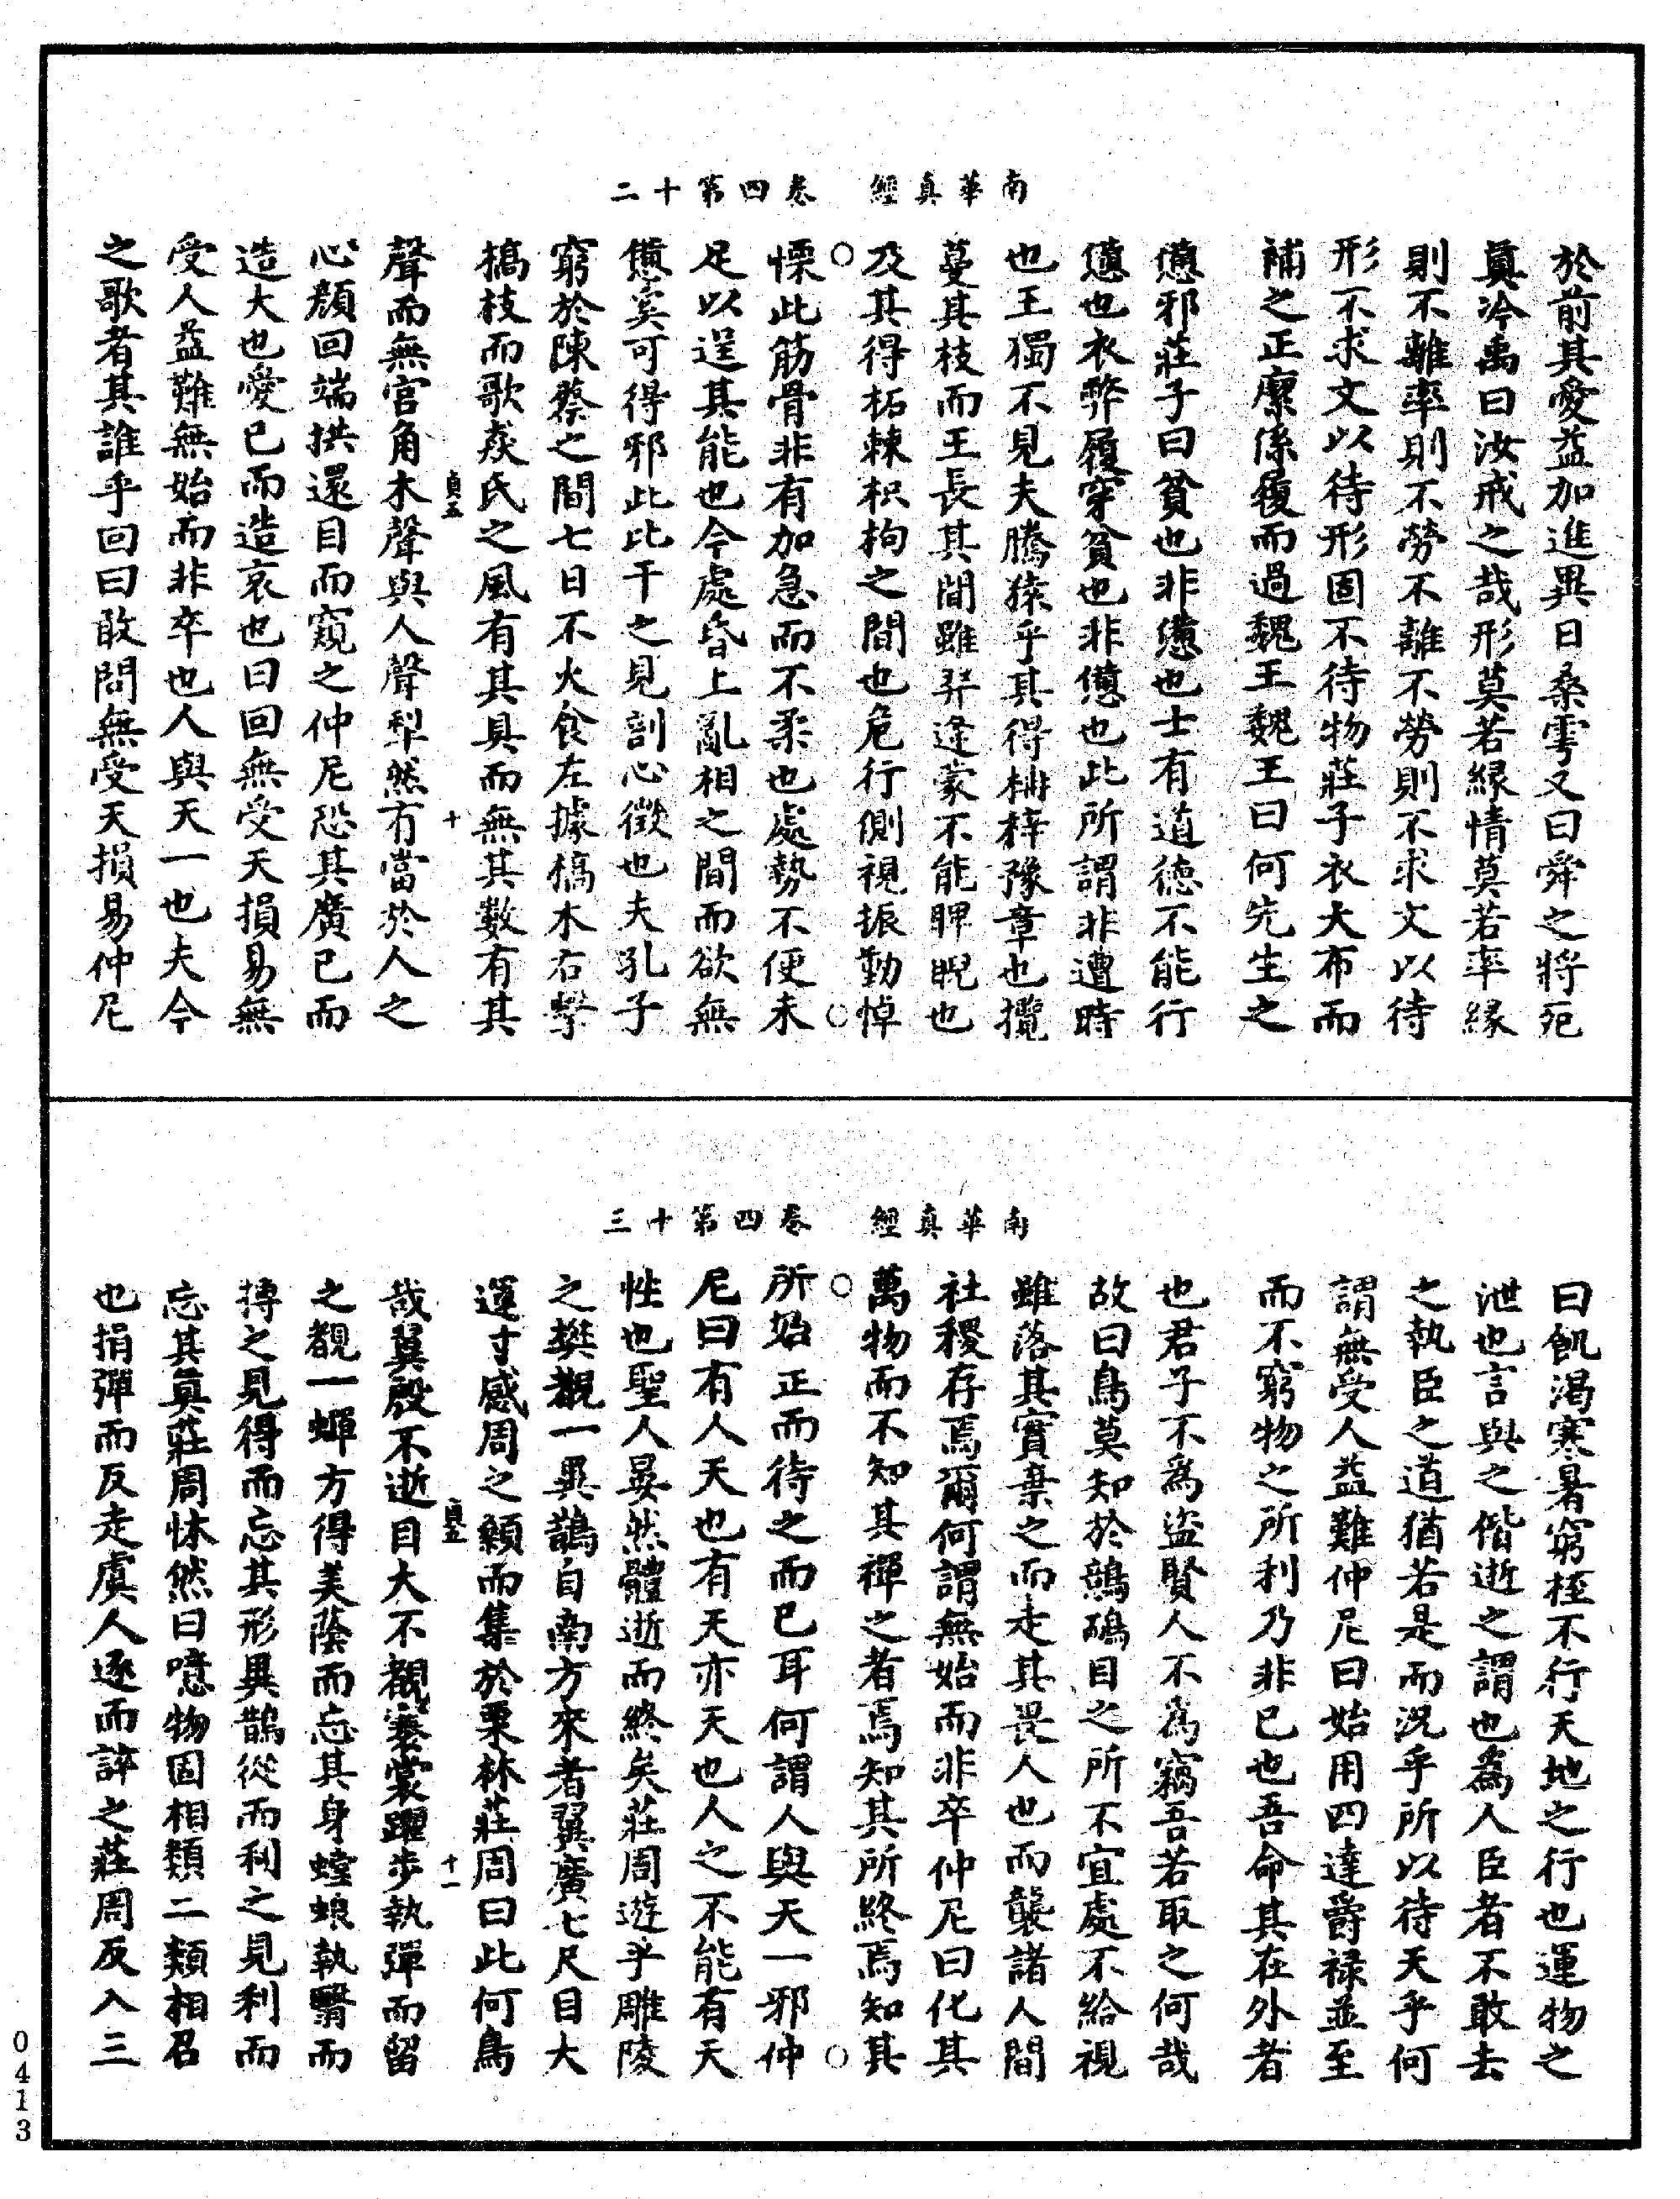 南華真經　卷四第十二
於前其愛益加進異日桑雽又曰舜之將死
真泠禹曰汝戒之哉形莫若緣情莫若率緣
則不離率則不勞不離不勞則不求文以待
形不求文以待形固不待物莊子衣大布而
補之正緳係履而過魏王魏王曰何先生之
憊邪莊子曰貧也非憊也士有道德不能行
憊也衣弊履穿貧也非憊也此所謂非遭時
也王獨不見夫騰猿乎其得柟梓豫章也攬
蔓其枝而王長其間雖羿逢蒙不能眄睨也
及其得柘棘枳枸之間也危行側視振動悼
慄此筋骨非有加急而不柔也處勢不便未
足以逞其能也今處昏上亂相之間而欲無
憊奚可得邪此比干之見剖心徵也夫孔子
窮於陳蔡之間七日不火食左據槁木右擊
槁枝而歌猋氏之風有其具而無其數有其
貞五　十
聲而無宮角木聲與人聲犁然有當於人之
心顏回端拱還目而窺之仲尼恐其廣己而
造大也愛己而造哀也曰回無受天損易無
受人益難無始而非卒也人與天一也夫今
之歌者其誰乎回曰敢問無受天損易仲尼
南華真經　卷四第十三
曰飢渴寒暑窮桎不行天地之行也運物之
泄也言與之偕逝之謂也為人臣者不敢去
之執臣之道猶若是而況乎所以待天乎何
謂無受人益難仲尼曰始用四達爵祿並至
而不窮物之所利乃非己也吾命其在外者
也君子不為盜賢人不為竊吾若取之何哉
故曰鳥莫知於鷾鴯目之所不宜處不給視
雖落其實棄之而走其畏人也而襲諸人間
社稷存焉爾何謂無始而非卒仲尼曰化其
萬物而不知其禪之者焉知其所終焉知其
所始正而待之而已耳何謂人與天一邪仲
尼曰有人天也有天亦天也人之不能有天
性也聖人晏然體逝而終矣莊周遊乎雕陵
之樊覩一異鵲自南方來者翼廣七尺目大
運寸感周之顙而集於栗林莊周曰此何鳥
貞五　十一
哉翼殷不逝目大不覩褰裳躩步執彈而留
之覩一蟬方得美蔭而忘其身螳蜋執翳而
搏之見得而忘其形異鵲從而利之見利而
忘其真莊周怵然曰噫物固相類二類相召
也捐彈而反走虞人逐而誶之莊周反入三
0413